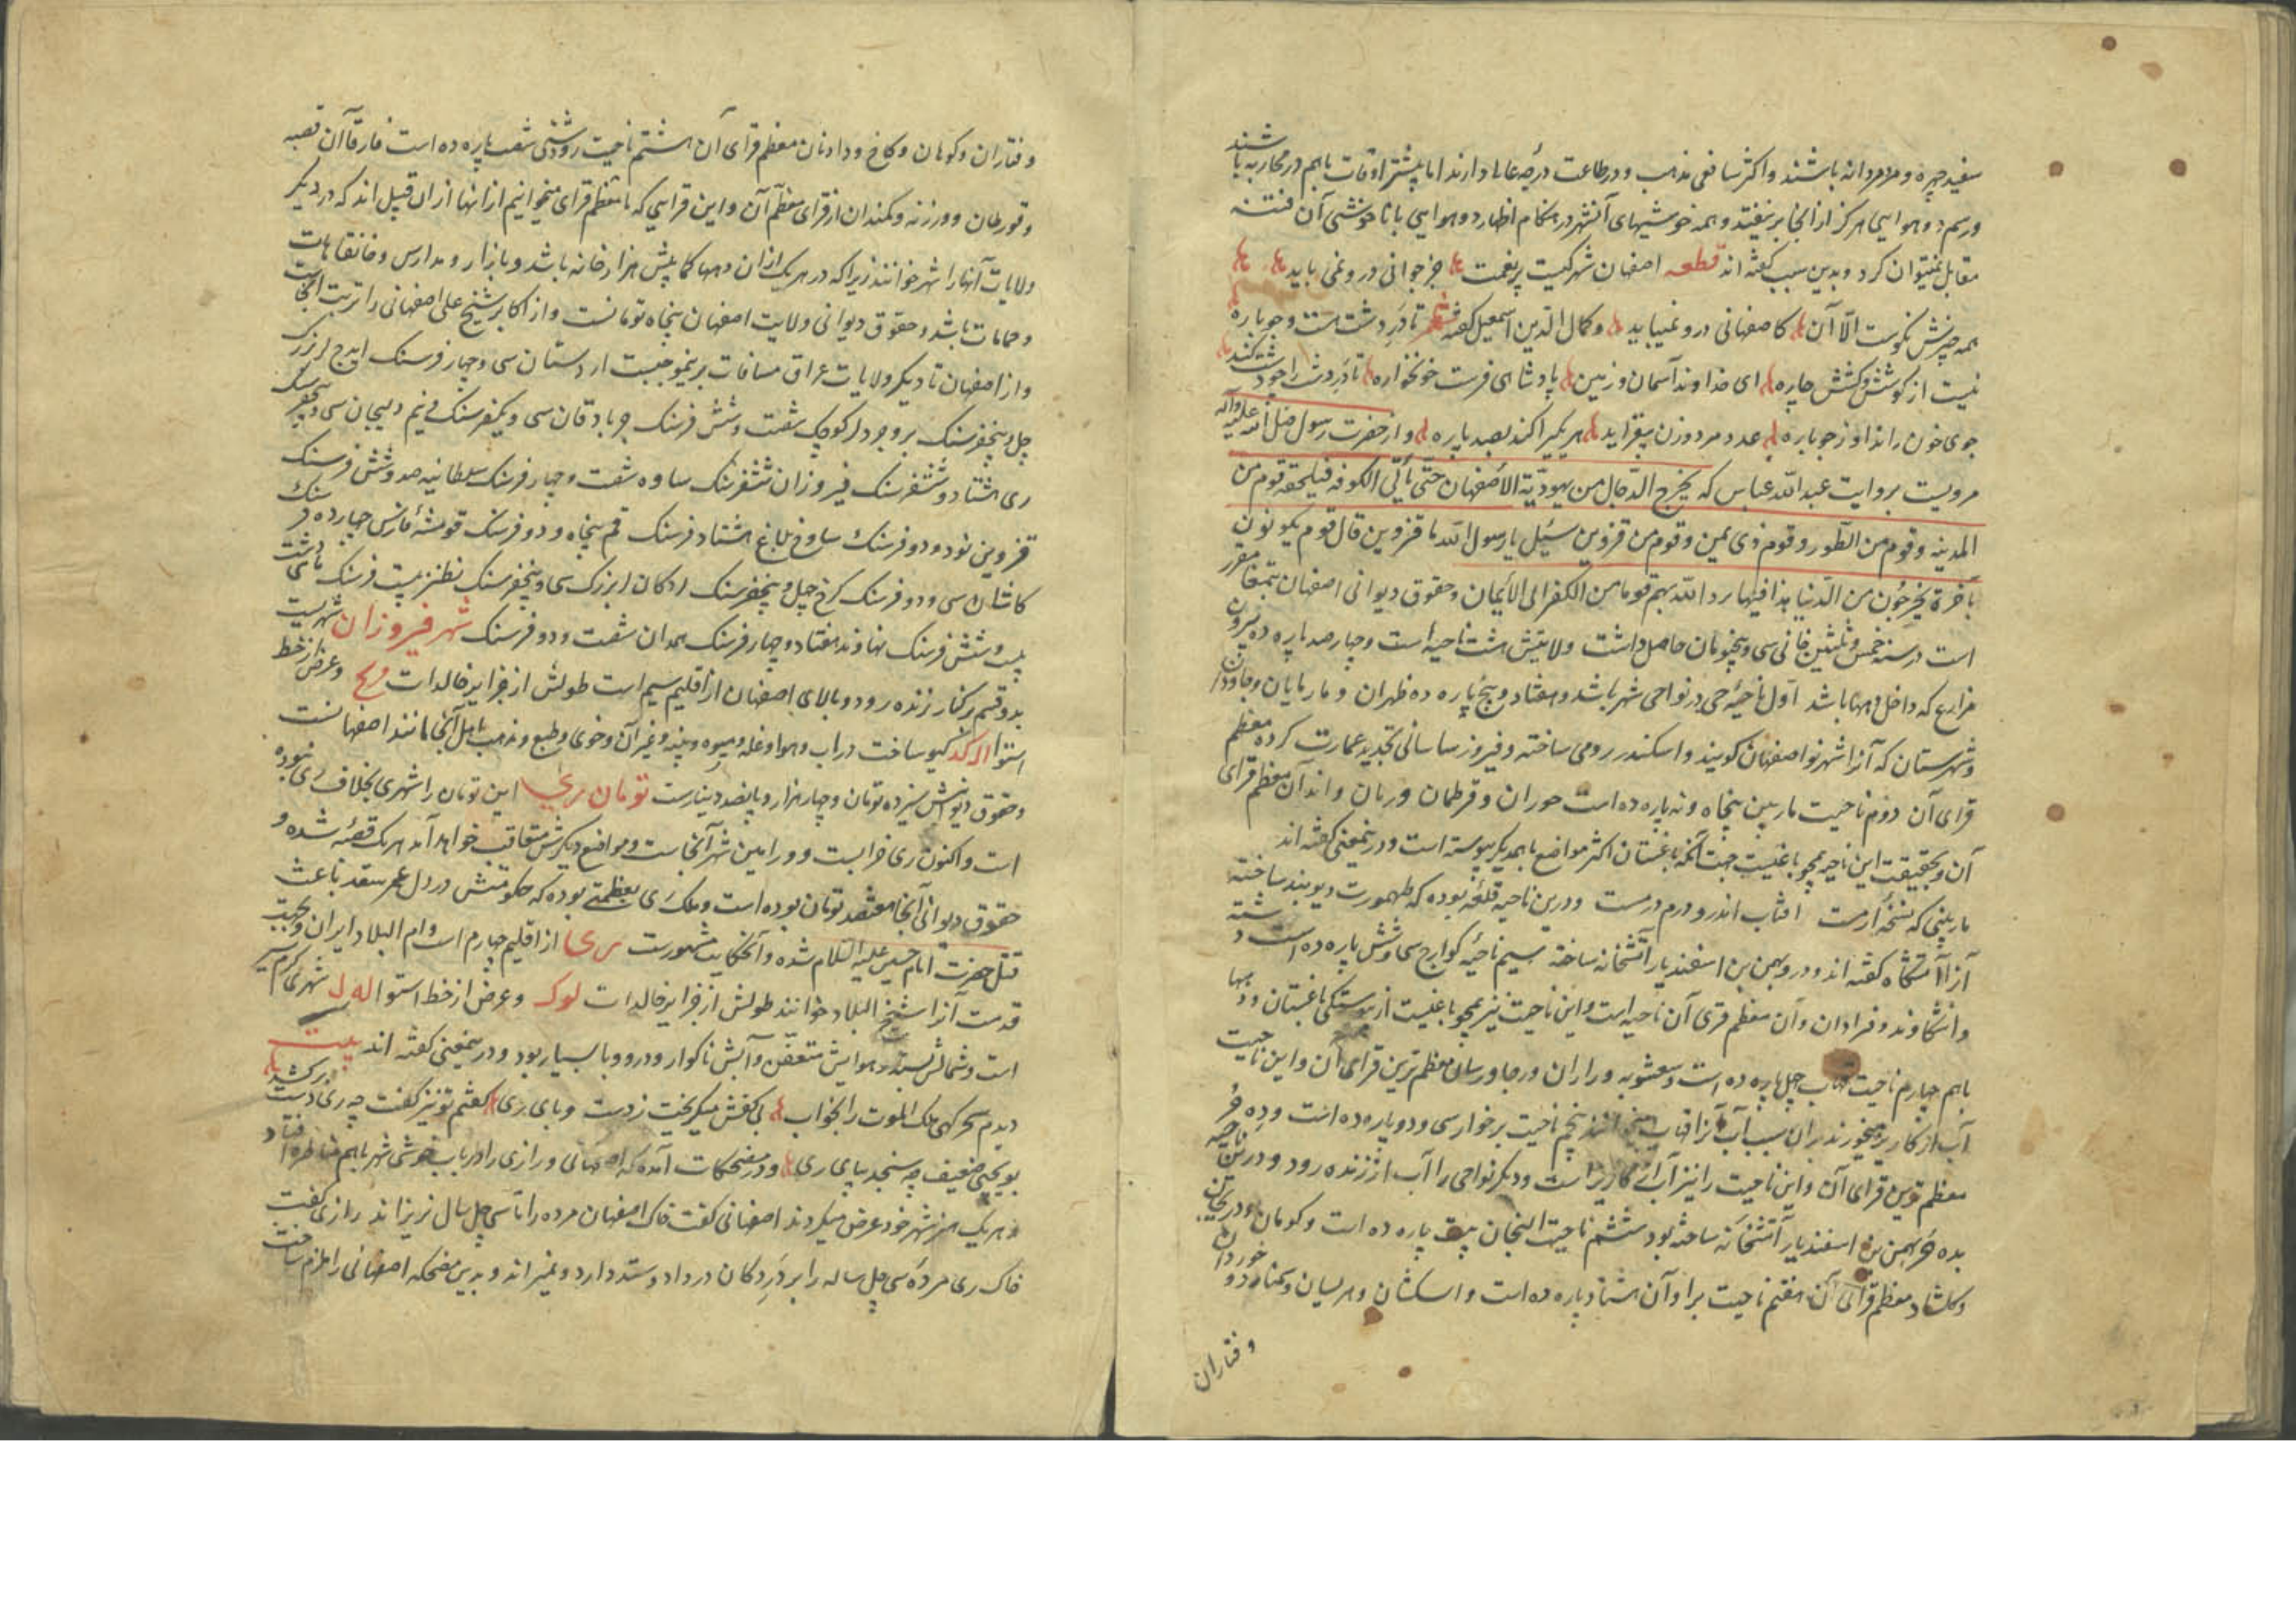 سفید چهره و مردمردانه باشند و اکثر شافعی مذهب و در طاعت درجه عالی دارند اما بیشتر اوقات باهم در محاربه باشند
و رسم دو هوایی هرگز از آنجا برنیفتد و همه خوشیهای آنشهر در هنگام اظهار دو هوایی با ناخوشی آن فتنه
مقابل نمیتوان کرد و بدین سبب گفته اند قطعه اصفهان شهرکیست پر نعمت جز جوانی درو نمی باید
همه چیزش نکوست الا آن کاصفهانی درو نمیباید و کمال الدین اسمعیل گفته شعر تا در دشت هست و جوباره
نیست از کوشش و کشش چاره ای خداوند آسمان و زمین پادشاهی فرست خونخواره تا در دشت را چو دشت کند
جوی خون راند او ز جوباره عدد مردوزن بیفزاید هر یکیرا کند بصد پاره و از حضرت رسول صلی الله علیه وآله
مرویست بروایت عبدالله عباس که یخرج الدجال من یهودیة الأصفهان حتی یأتی الکوفه فیلحقه قوم من
المدینه و قوم من الطور و قوم ذی یمین و قوم من قزوین سئیل یا رسول الله ما قزوین قال قوم یکونون
بآخرة یخرجون من الدنیا بذا فیها یرد الله بهم قوما من الکفر الی الایمان و حقوق دیوانی اصفهان بتمغا مقرر
است در سنه خمس و ثلثین خانی سی و پنجتومان حاصل داشت ولایتش هشت ناحیه است و چهارصد پاره ده بیرون
مزارع که داخل دیهها باشد اول ناحیه جی در نواحی شهر باشد و هفتاد و پنج پاره ده طهران و ماربایان و جاودان
و شهرستان که آنرا شهر نو اصفهان گویند و اسکندر رومی ساخته و فیروز ساسانی تجدید عمارت کرده معظم
قرای آن دوم ناحیت ماربین پنجاه و نه پاره ده است خوران و قرطمان و رنان و اندآن معظم قرای
آن و بحقیقت این ناحیه همچو باغیست جهت آنکه باغستان اکثر مواضع باهمدیگر پیوسته است و در ینمعنی گفته اند
ماربینی که نسخه ارمست آفتاب اندرو درم درمست و درین ناحیه قلعه بوده که طهمورث دیوبند ساخته
آنرا آتشگاه گفته اند و درو بهمن بن اسفندیار آتشخانه ساخته سیم ناحیه کوارج سی و شش پاره ده است دشته
و اشکاوند و فیزادان و آن معظم قری آن ناحیه است و این ناحیت نیز همچو باغیست از پیوستگی باغستان و دیهها
باهم چهارم ناحیت قهاب چهل پاره ده است و معظم ترین قرای آن و این ناحیت
آب از کاریز میخورند بدان سبب آب آنرا قهاب میخوانند پنجم ناحیت برخوار سی و دو پاره ده است و ده جز
معظم ترین قرای آن و این ناحیت را نیز آب از کاریز است و دیگر نواحی را آب از زنده رود و درین ناحیه
بده جز بهمن بن اسفندیار آتشخانه ساخته بود ششم ناحیت النجان بیست پاره ده است و کومان و دریجان
و کلشاد معظم قرای آن هفتم ناحیت براوآن هشتاد پاره ده است و اسکشان و هرسیان
و فتاران
و فتاران و کوهان و کاخ و دادنان معظم قرای آن هشتم ناحیت رودشتین شصت پاره ده است فارفاآن قصبه
و قورطان و ورزنه و کمندان از قرای معظم آن و این قرایی که ما معظم قرای میخوانیم ازانها ازان قبیل اند که در دیگر
ولایات آنها را شهر خوانند زیرا که در هر یک ازان دیهها کمابیش هزار خانه باشد و بازار و مدارس و خانقاهات
و حمامات باشد و حقوق دیوانی ولایت اصفهان پنجاه تومانست و از اکابر شیخ علی اصفهانی را تربت آنجاست
و از اصفهان تا دیگر ولایات عراق مسافات برینموجبست اردستان سی و چهار فرسنگ ایدج لر بزرگ
چهل و پنجفرسنگ بروجرد لر کوچک شصت و شش فرسنگ جربادقان سی و یکفرسنگ و نیم دلیجان سی و پنجفرسنگ
ری هشتاد و ششفرسنگ فیروزان ششفرسنگ ساوه شصت و چهار فرسنگ سلطانیه صد و شش فرسنگ
قزوین نود و دو فرسنگ هشتاد فرسنگ قم پنجاه و دو فرسنگ قومشه فارس چهارده فرسنگ
کاشان سی و دو فرسنگ کرخ چهل و پنجفرسنگ لردکان لر بزرگ سی و پنجفرسنگ نطنز بیست فرسنگ
بیست و شش فرسنگ نهاوند هفتاد و چهار فرسنگ همدان شصت و دو فرسنگ شهر فیروزان شهریست
بدو قسم بر کنار زنده رود و بالای اصفهان از اقلیم سیم است طولش از جزایر خالدات و عرض از خط
استوا کیو ساخت در آب و هوا و غله و میوه و پنبه و غیر آن و خوی و طبع و مذهب اهل آنجا مانند اصفهانست
و حقوق دیوانش سیزده تومان و چهار هزار و پانصد دینارست تومان ری این تومان را شهری بخلاف ری نبوده
است و اکنون ری خرابست و ورامین شهر آنجاست و مواضع دیگرش متعاقب خواهد آمد هر یک قصبه شده و
حقوق دیوانی آنجا هفتصد تومان بوده است و ملک ری بعظمتی بوده که حکومتش در دل عمر سعد باعث
قتل حضرت امام حسین علیه السلام شده و آنحکایت مشهورست ری از اقلیم چهارم است و ام البلاد ایران و بجهت
قدمت آنرا شیخ البلاد خوانند طولش از جزایر خالدات لوک و عرض از خط استوا له ل شهری گرمسیر
است و شمالش بسته و هوایش متعفن و آبش ناگوار و درو وبا بسیار بود و در ینمعنی گفته اند بیت
دیدم سحرگهی ملک الموت را بخواب بی کفش میگریخت ز دست وبای ری گفتم تو نیز گفت چه ری دست برکشد
بو یحیی ضعیف چه سنجد بپای ری و در مضحکات آمده که اصفهانی و رازی را در باب خوشی شهر باهم مناظره افتاد
و هر یک هنر شهر خود عرض میکردند اصفهانی گفت خاک اصفهان مرده را تا سی چهل سال نریزاند رازی گفت
خاک ری مرده سی چهل ساله را بر در دکان در داد و ستد دارد و نمیراند و بدین مضحکه اصفهانی را ملزم ساخت